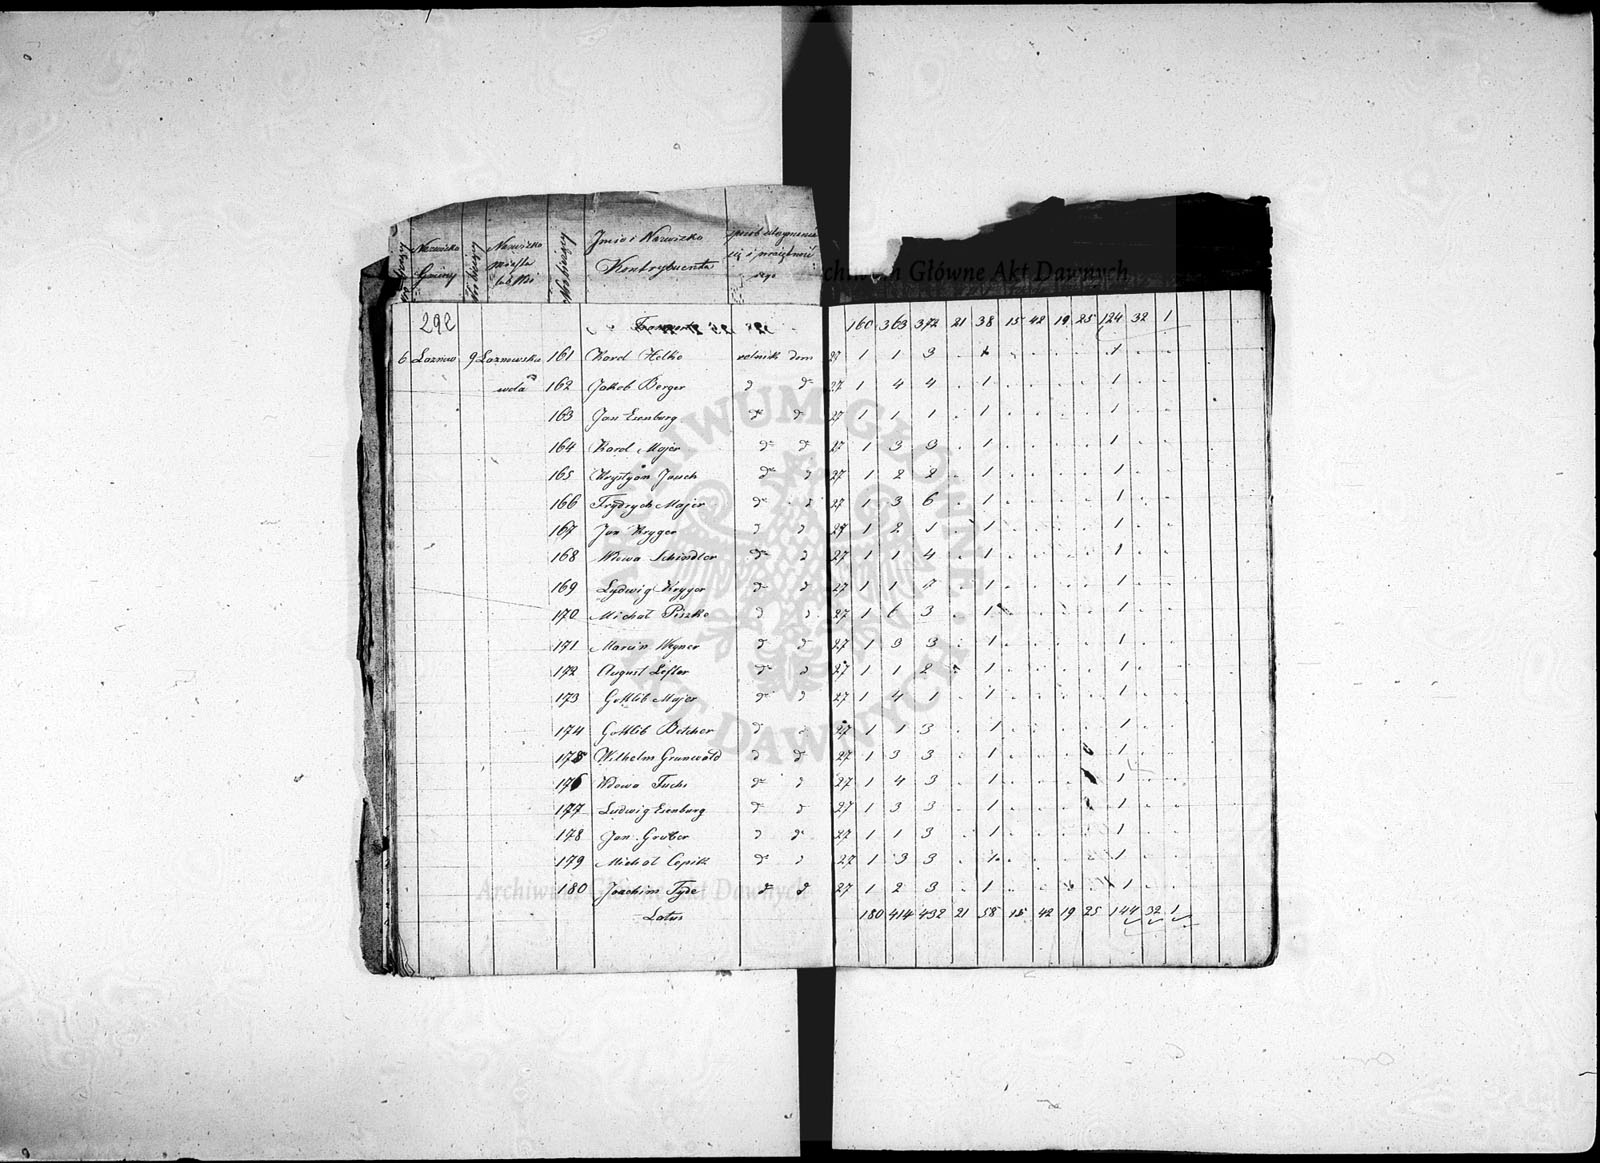 Nazwisko Gminy
Nazwisko miasta lub Wsi
Imie i Nazwisko Kontrybuenta
Archiwum Główne Akt Dawnych
292 Transport 160 363 372 21 38 15 42 19 25 124 32 1
6 Laznow 9 Laznowska 161 Karol Helke rolnik dom 27 1 1 3 . 1 . . . . 1 . .
wola 162 Jakob Berger d d 27 1 4 4 . 1 . . . . 1 . .
163 Jan Esenburg d d 27 1 1 1 . 1 . . . . 1 . .
164 Karol Majer d d 27 1 3 3 . 1 . . . . 1 . .
165 Krystyan Jauch d d 27 1 2 2 . 1 . . . . 1 . .
166 Frydrych Majer d d 27 1 3 6 . 1 . . . . 1 . .
167 Jan Kryger d d 27 1 2 1 . 1 . . . . 1 . .
168 Wdowa Schindler d d 27 1 1 4 . 1 . . . . 1 . .
169 Lydwig Kryger d d 27 1 1 . 1 . . . . 1 . .
170 Michał Piszke d d 27 1 6 3 . 1 . . . . 1 . .
171 Marcin Wegner d d 27 1 3 3 . 1 . . . . 1 . .
172 August Lefler d d 27 1 1 2 . 1 . . . . 1 . .
173 Gottlib Majer d d 27 1 4 1 . 1 . . . . 1 . .
174 Gottlib Betcher d . 27 1 1 3 . 1 . . . . 1 . .
175 Wilhelm Grunwald d d 27 1 3 3 . 1 . . . . 1 . .
176 Wdowa Fuchs d d 27 1 4 3 . 1 . . . . 1 . .
177 Ludwig Esenburg d d 27 1 3 3 . 1 . . . . 1 . .
178 Jan Gruber d d 27 1 1 3 . 1 . . . . 1 . .
179 Michał Cepik d d 27 1 3 3 . 1 . . . . 1 . .
180 Joachim Tyde d d 27 1 2 3 . 1 . . . . 1 . .
Latus 180 414 432 21 58 15 42 19 25 144 32 1
Archiwum Główne Akt Dawnych
ARCHIWUM GŁÓWNE AKT DAWNYCH